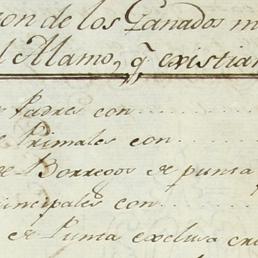 on de los Ganados m
l Alamo, q̃ existian
e Padres con
e Primales con
de Borregos de punta
rincipales con
de Punta exclusa